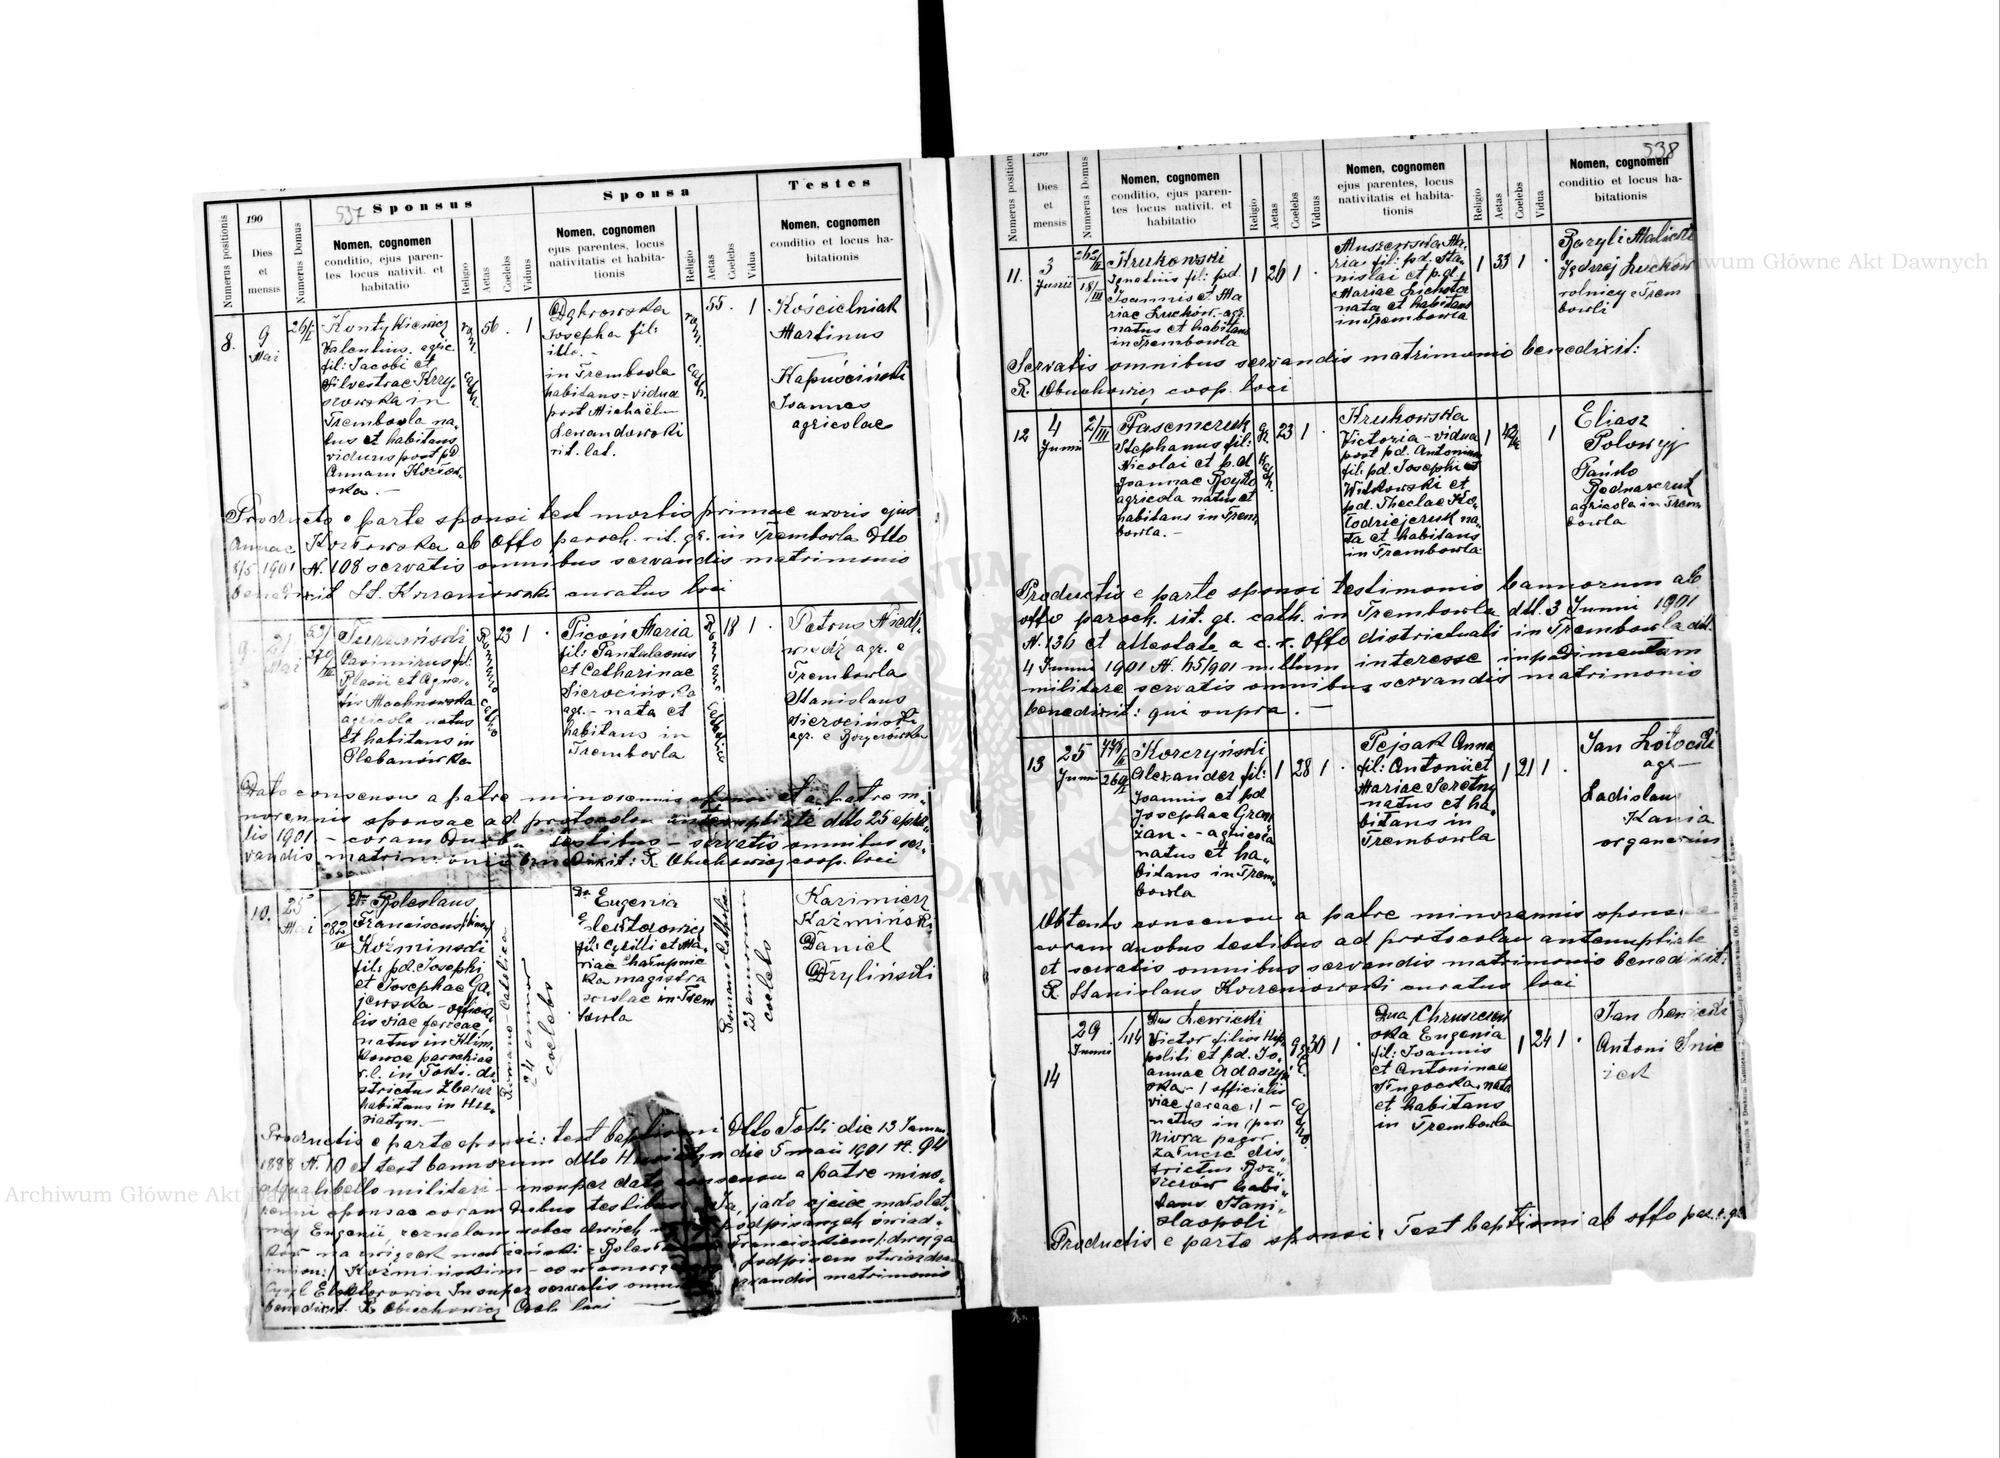 537
Sponsus
Sponsa
Testes
Numerus positionis
190
Dies
et
mensis
Numerus Domus
Nomen, cognomen
conditio, ejus paren-
tes locus nativit. et
habitatio
Religio
Aetas
Coelebs
Viduus
Nomen, cognomen
ejus parentes, locus
nativitatis et habita-
tionis
Religio
Aetas
Coelebs
Vidua
Nomen, cognomen
conditio et locus ha-
bitationis
8.
9
Mai
Kontykiewicz
Valentius, agric.
fil: Jacobi et
Silvestrae Krzy-
szowska in
Trembowla na-
tus et habitans
viduus post pd
Annam Kozłow-
ska. —
rom.
cath.
56 . 1
Dąbrowska
Josepha fil:
in Trembowla
habitans - vidua
post Michaële
Lewandowski
rit. lat.
rom.
cath.
55 . 1
Kościelniak
Martinus
Kapuściński
Joannes
agricolae
Producto e parte sponsi test mortis primae uxoris ejus
Annae Kozłowska ab Offo paroch. rit. gr. in Trembowla dtto
8/5 1901 N. 108 servatis omnibus servandis matrimonio
benedixit St. Krzemiowski curatus loci
9.
21
Mai
Turzański
Casimirus fil:
Blasii et Agne-
tis Machnowska
agricola natus
et habitans in
Plebanówka
Romano
catho
23 1 .
Picoń Maria
fil: Pantaleonis
et Catharinae
Sierocińska
agr. - nata et
habitans in
Trembowla
18 1 .
Petrus Niedź-
wiedź agr. e
Trembowla
Stanislaus
Sierociński
agr. e Boryczówka
Dato consensu a patre minorennis sponsi et a patre mi-
norennis sponsae ad protocolon antenuptiale dtto 25 apri-
lis 1901 - coram duobus testibus - servatis omnibus ser-
vandis matrimonio benedixit: R. Obuchowicz coop. loci
10.
25
Mai
282/IV
Boleslaus
Franciscus
Koźminski
fil: pd. Josephi
et Josephae Ga-
jewska - officia-
lis viae ferreae
natus in Klim-
kowce parochiae
r.l. in Toki. di-
strictus Zbaraż
habitans in Hu-
siatyn. —
Romano-Catholica
24 annor
coelebs
Eugenia
Elektorowicz
fil: Cyrilli et Ma-
riae Chałupnic-
ka magistra
scolae in Trem
bowla
Romano-Catholica
23 annorum
coelebs
Kazimierz
Kaźmiński
Daniel
Dryliński
Productis e parte sponsi: test baptismi dtto Toki die 13 Januar
1898 N. 10 et test bannorum dtto Husiatyn die 5 maii 1901 N. 94
atque libello militari - insuper dato consensu a patre mino-
renni sponsae coram duobus testibus. Ja, jako ojciec małolet-
niej Eugenii, zezwalam wobec dwóch podpisanych świad-
ków na związek małżeński z Bolesławem Franciszkiem /: dwojga
imion :/ Koźmińskim - co własnoręcznym podpisem stwierdzam
Cyryl Elektorowicz Insuper servatis omnibus servandis matrimonio
benedixit R. Obuchowicz Coop. loci —
538
Numerus positionis
190
Dies
et
mensis
Numerus Domus
Nomen, cognomen
conditio, ejus paren-
tes locus nativit. et
habitatio
Religio
Aetas
Coelebs
Viduus
Nomen, cognomen
ejus parentes, locus
nativitatis et habita-
tionis
Religio
Aetas
Coelebs
Vidua
Nomen, cognomen
conditio et locus ha-
bitationis
11.
3
Junii
Krukowski
Ignatius fil: pd.
Joannis et Ma
riae Luchow. - agr.
natus et habitans
in Trembowla
1 26 1 .
Muszewska Ma-
ria fil: pd. Sta-
nislai et pd.
Mariae Lichota
nata et habitans
in Trembowla
1 33 1 .
Bazyli Malicki
Jędrzej Luckow
rolnicy z Trem
bowli
Servatis omnibus servandis matrimonio benedixit:
R. Obuchowicz coop. loci
12
4
Junii
2/III
Pasemczuk
Stephanus fil:
Nicolai et p.d
Joannae Boyko
agricola natus et
habitans in Trem
bowla. —
gr.
Kath.
23 1 .
Krukowska
Victoria - vidua
post pd. Antonium
fil: pd. Josephi et
Witkowski et
pd. Theclae Ko-
łodziejczuk na-
ta et habitans
in Trembowla
1
1
Eliasz
Polowyj
Pańko
Bednarczuk
agricola in Trem
bowla
Productis e parte sponsi testimonio bannorum ab
offo paroch. rit. gr. cath. in Trembowla dtt. 3 Junii 1901
N. 136 et attestate a c. r. Offo districtuali in Trembowla dtt.
4 Junii 1901 N. 65/901 nullum interesse inpedimentum
militare servatis omnibus servandis matrimonio
benedixit: qui supra. —
13
25
Junii
Korczyński
Alexander fil:
Joannis et pd
Josephae Gran
zan. - agricola
natus et ha-
bitans in Trem-
bowla
1 28 1 .
Pejsak Anna
fil: Antonii et
Mariae Seretny
natus et ha-
bitans in
Trembowla
1 21 1 .
Jan Łotocki
agr —
Ladislaus
Kania
organarius
Obtento consensu a patre minorennis sponsae
coram duobus testibus ad protocolon antenuptiale
et servatis omnibus servandis matrimonio benedixit:
R. Stanislaus Krzemowski curatus loci
14
29
Junii
114
Dus Lewicki
Victor filius Hip-
politi et pd. Jo-
annae Adaszyń
ska - / officialis
viae ferreae :/ -
natus in
nivra pagor.
Załucze dis-
trictus Bor-
szczów habi-
tans Stani-
slaopoli
30 1 .
Dna Chruszczew
ska Eugenia
fil: Joannis
et Antoninae
nata
et habitans
in Trembowla
1 24 1 .
Jan Lewicki
Antoni Śnie
żek
Productis e parte sponsi: Test baptismi ab offo par. r. gr.
Archiwum Główne Akt Dawnych
Archiwum Główne Akt Dawnych